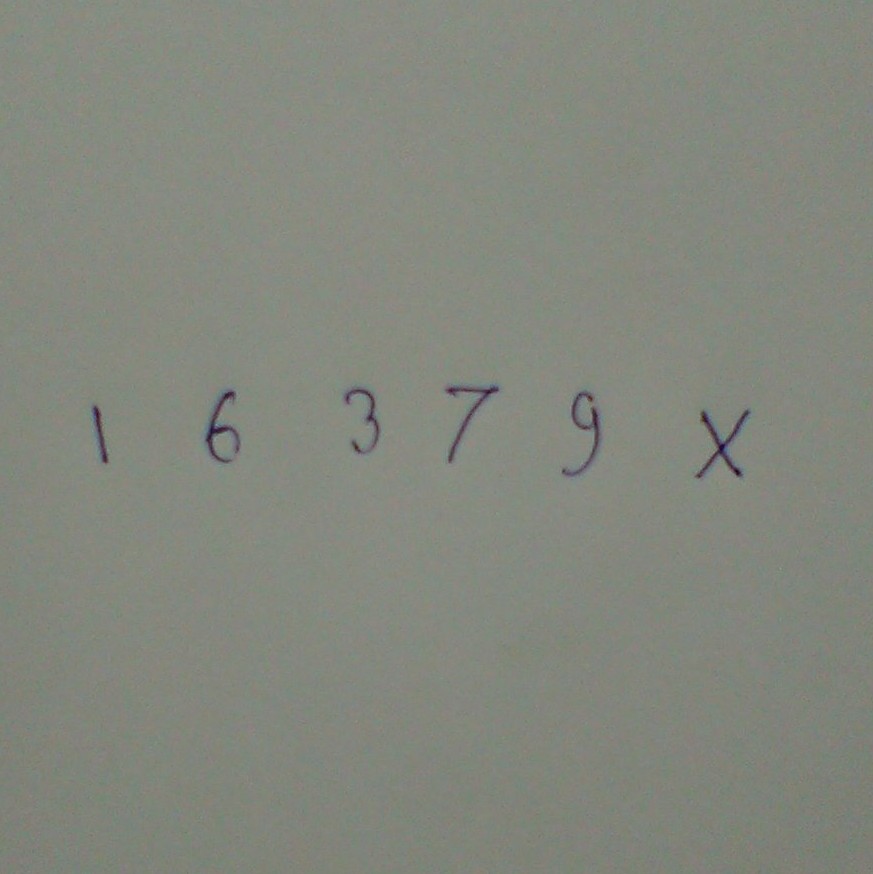 1 6 3 7 9 X